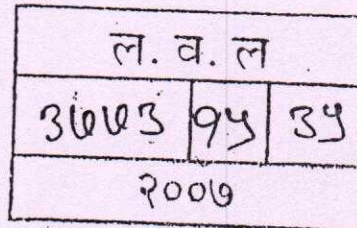 ल. व. ल
३७७३ १५ ३५
२००७